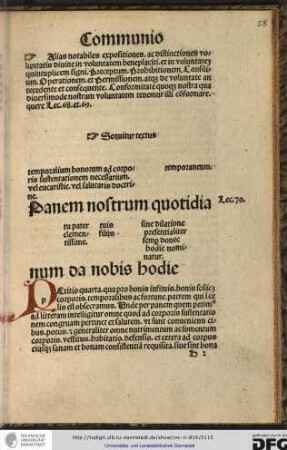 58
Communio
☞ Alias notabiles expositiones. ac distinctiones vo
luntatis diuine in voluntatem beneplaciti. et in voluntatez
quintuplicem signi. Preceptum. Prohibitionem. Consili
um. Operationem. et Permissionem. atqz de voluntate an
tecedente et consequente. Conformitate quoqz nostra qua
diuersimode nostram voluntatem tenemur illi cōformare.
quere Lec. 68. et. 69.
☞ Sequitur textus
temporalium bonorum ad corpo- temporaneum.
ris sustentationem necessarium.
vel eucaristie. vel salutaris doctri
ne.
Panem nostrum quotidia Lec. 70.
tu pater tuis sine dilatione
clemen- filijs presentialiter
tissime. semp donec
hodie nomi
natur.
num da nobis hodie
PEtitio quarta. qua pro bonis infimis. bonis scilicz
corporis. temporalibus ac fortune. patrem qui in ce
lis est obsecramus. Unde per panem quem petim9
ad litteram intelligitur omne quod ad corporis sustentatio
nem congruam pertinet et salutem. vt sunt conueniens ci
bus. potus. z generaliter omne nutrimentum ac fomentum
corporis. vestitus. habitatio. defensio. et cetera ad corpus
eiusqz sanam et bonam consistentiā requisita. siue sint bona
h 2
TECHNISCHE
UNIVERSITÄT
DARMSTADT
http://tudigit.ulb.tu-darmstadt.de/show/inc-ii-819/0115
Universitäts- und Landesbibliothek Darmstadt
gefördert durch die
DFG